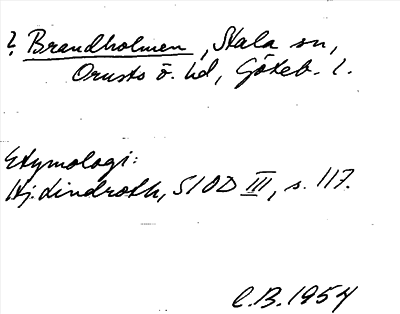 ? Brandholmen, Stala sn,
Orusts ö. hd, Göteb. l.
Etymologi:
Hj. Lindroth, SIOD III, s. 117.
C.B. 1954